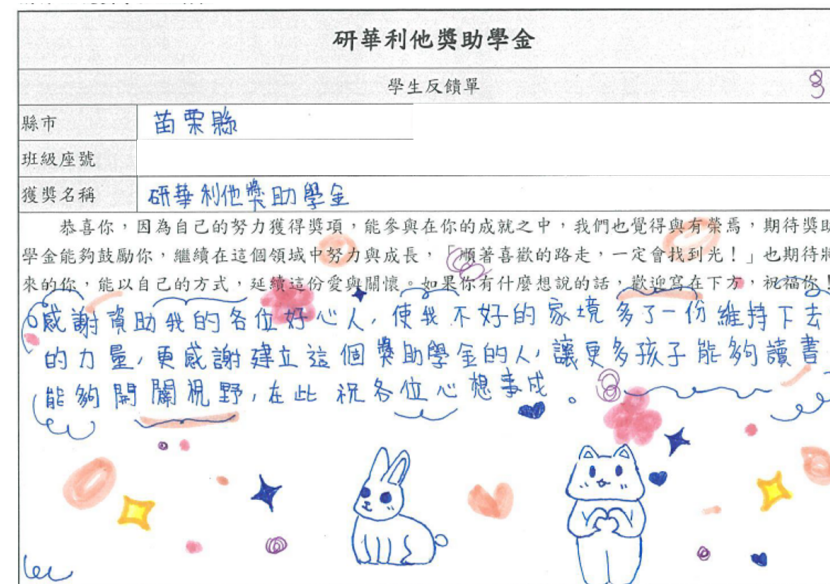 研華利他獎助學金
學生反饋單
縣市 苗栗縣
班級座號
獲獎名稱 研華利他獎助學金
恭喜你，因為自己的努力獲得獎項，能參與在你的成就之中，我們也覺得與有榮焉，期待獎助
學金能夠鼓勵你，繼續在這個領域中努力與成長，「順著喜歡的路走，一定會找到光！」也期待將
來的你，能以自己的方式，延續這份愛與關懷。如果你有什麼想說的話，歡迎寫在下方，祝福你！
感謝資助我的各位好心人，使我不好的家境多了一份維持下去
的力量，更感謝建立這個獎助學金的人，讓更多孩子能夠讀書
能夠開闊視野，在此祝各位心想事成。